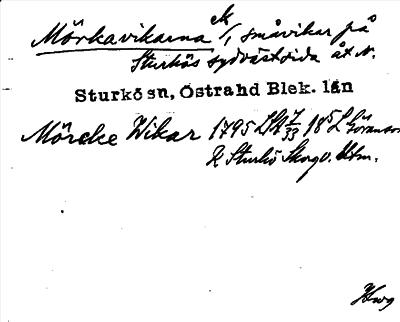 Mörkavikarna ek /, småvikar på
Sturkös sydvästsida åt N.
Sturkö sn, Östrahd Blek. län
Mörcke Wikar 1795 7/33 18 L Göranson
R Sturkö Skogv. Utm.